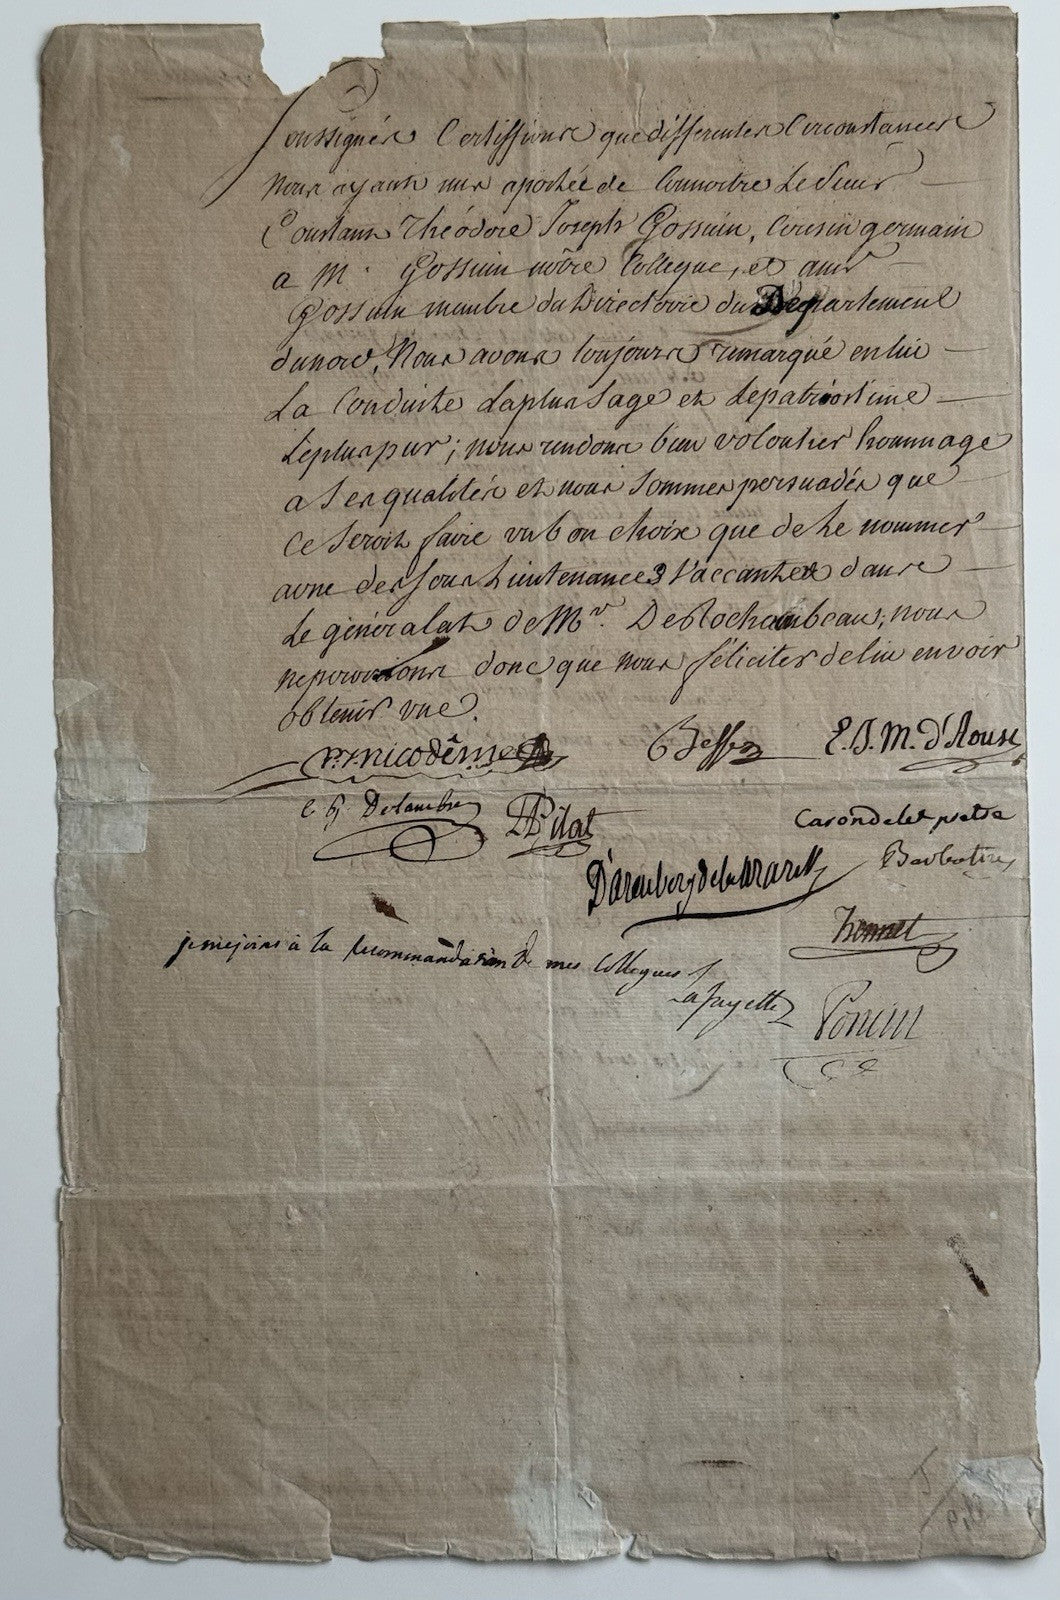 Soussignés Certiffions que differentes Circonstances
nous ayant mis aportée de Connoitre Le Sieur
Constant Théodore Joseph Gossuin, Cousin germain
a M. Gossuin nôtre Collegue, et aux
Gossuin membre du Directoire du Département
du nord, Nous avons toujours remarqué en lui
La Conduite La plus Sage et Le patriotisme
Le plus pur; nous rendons bien volontier hommage
a Ses qualités et nous Sommes persuadés que
Ce Seroit faire un bon choix que de Le nommer
a une des Sous Lieutenances Vaccantes dans
Le généralat de Mr. DeRochambeau; nous
ne pouvions donc que nous féliciter de lui en voir
obtenir une.
nicodême Besse E. J. M. d'Aoust
Delambre Pilat Carondelet
D'arenberg de la marck
honnet
je me joins à la recommandation de mes Collegues
Lafayette Poncin